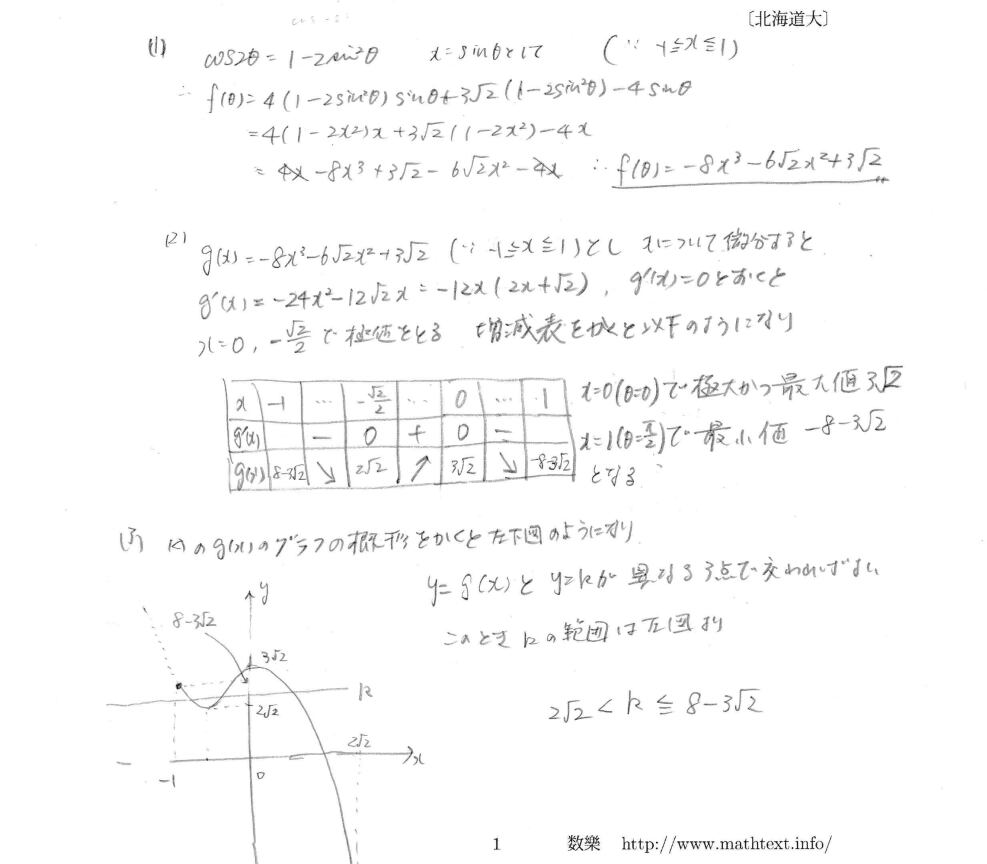 〔北海道大〕
(1) cos2θ = 1 − 2sin²θ x = sinθとして (∵ −1≦x≦1)
∴ f(θ) = 4(1−2sin²θ)sinθ + 3√2(1−2sin²θ) − 4sinθ
= 4(1−2x²)x + 3√2(1−2x²) − 4x
= 4x − 8x³ + 3√2 − 6√2x² − 4x ∴ f(θ) = −8x³ − 6√2x² + 3√2
(2) g(x) = −8x³ − 6√2x² + 3√2 (∵ −1≦x≦1)とし xについて微分すると
g'(x) = −24x² − 12√2x = −12x(2x+√2), g'(x)=0とおくと
x=0, −√2/2 で極値をとる 増減表をかくと以下のようになり
x −1 … −√2/2 … 0 … 1
g'(x) − 0 + 0 −
g(x) 8−3√2 ↘ 2√2 ↗ 3√2 ↘ −8−3√2
x=0(θ=0)で極大かつ最大値3√2
x=1(θ=π/2)で最小値 −8−3√2
となる
(3) (2)のg(x)のグラフの概形をかくと左下図のようになり
y=g(x)と y=kが 異なる3点で交われればよい
このとき kの範囲は左図より
2√2 < k ≦ 8−3√2
y
8−3√2
3√2
k
2√2
2√2
x
−1
0
1 数樂 http://www.mathtext.info/